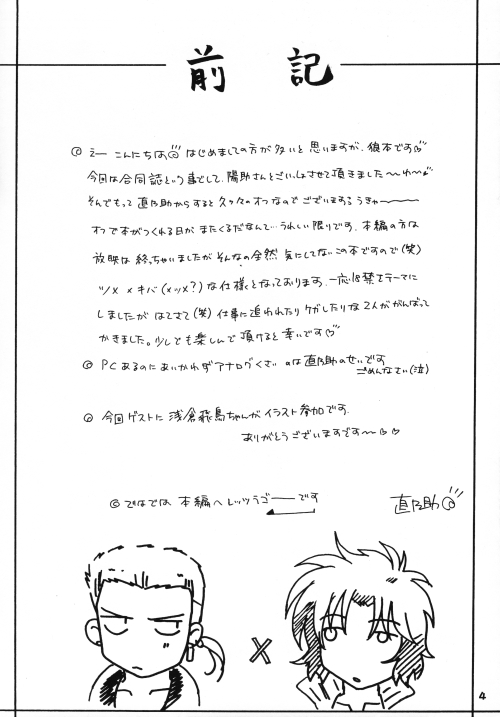 前記
◎ えー こんにちは◎ はじめましての方が多いと思いますが、狼本です♡
今回は合同誌という事でして、陽助さんとごいっしょさせて頂きました〜わ〜
そんでもって直乃助からすると久々のオフなのでございまするうきゃ〜〜〜
オフで本がつくれる日がまたくるだなんて…うれしい限りです。本編の方は
放映は終っちゃいましたがそんなの全然 気にしてないこの本ですので(笑)
ツメ × キバ (×ツメ?) な仕様となっております。一応18禁をテーマに
しましたが はてさて(笑) 仕事に追われたりケガしたりな2人ががんばって
かきました。少しでも楽しんで頂けると幸いです♡
◎ PCあるのにあいかわらずアナログくさいのは直乃助のせいです
ごめんなさい(泣)
◎ 今回ゲストに 浅倉飛鳥ちゃんが イラスト参加です.
ありがとうございますです〜♡♡
◎ でわでは 本編へ レッツラゴーーです
直乃助◎
×
4